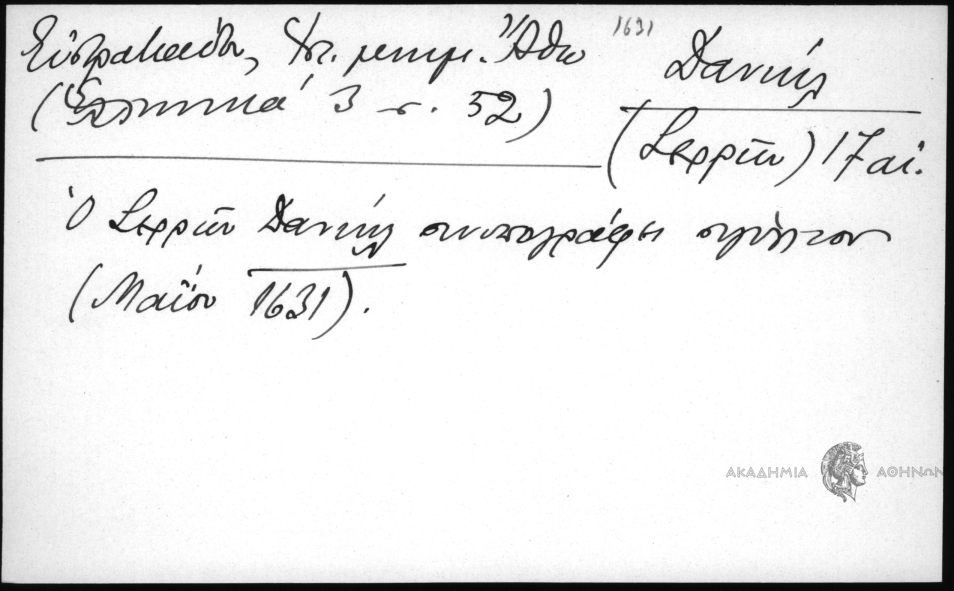 Εὐστρατιάδου, Ἱστ. μνημ. Ἄθω
(Ἑλληνικά 3 σ. 52)
1631
Δανιήλ
(Σερρῶν) 17 αἰ.
Ὁ Σερρῶν Δανιήλ συνυπογράφει σιγίλλιον
(Μαΐου 1631).
ΑΚΑΔΗΜΙΑ ΑΘΗΝΩΝ